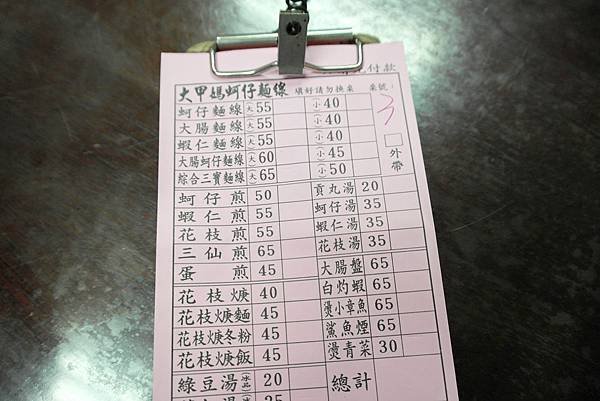 付款
大甲媽蚵仔麵線 填好請勿換桌 桌號: 3
蚵仔麵線 大 55 小 40
大腸麵線 大 55 小 40
蝦仁麵線 大 55 小 40
大腸蚵仔麵線 大 60 小 45
綜合三寶麵線 大 65 小 50
外帶
蚵仔煎 50 貢丸湯 20
蝦仁煎 55 蚵仔湯 35
花枝煎 55 蝦仁湯 35
三仙煎 65 花枝湯 35
蛋煎 45 大腸盤 65
花枝焿 40 白灼蝦 65
花枝焿麵 45 燙小章魚 65
花枝焿冬粉 45 鯊魚煙 65
花枝焿飯 45 燙青菜 30
綠豆湯 20 總計